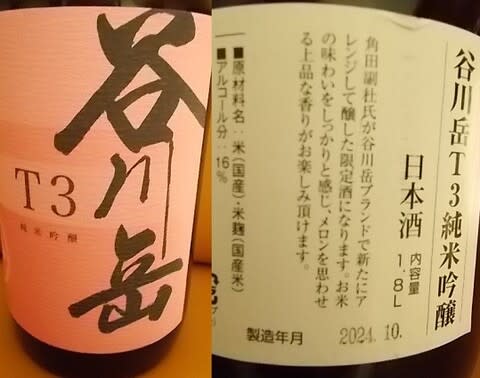 谷川岳
T3
純米吟醸
谷川岳T3純米吟醸
日本酒
内容量
1.8L
角田副杜氏が谷川岳ブランドで新たにア
レンジして醸した限定酒になります。お米
の味わいをしっかりと感じ、メロンを思わせ
る上品な香りがお楽しみ頂けます。
■原材料名:米(国産)・米麹(国産米)
■アルコール分:16%
製造年月 2024.10.